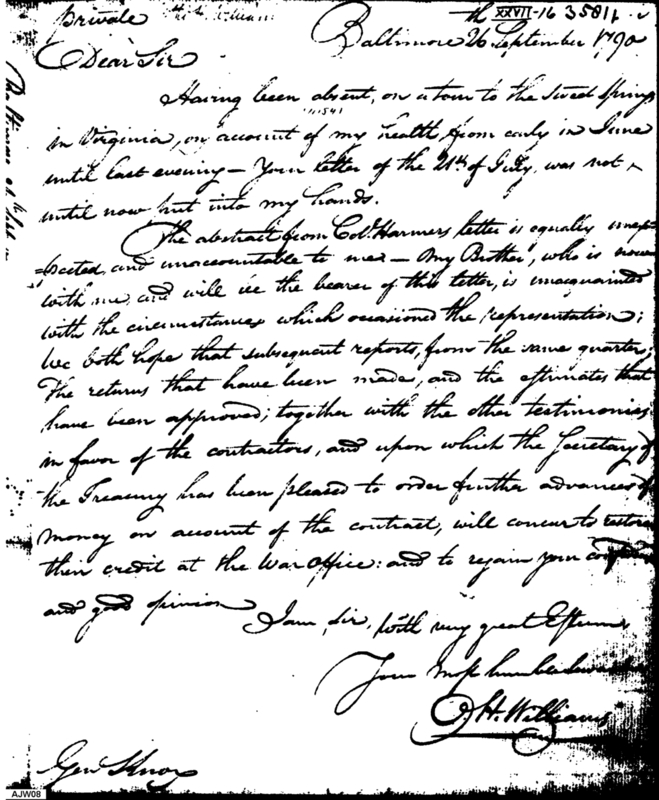 Private
XXVII-16 35811
Baltimore 26th September 1790
Dear Sir
Having been absent, on a tour to the sweet springs
in Virginia, on account of my health, from early in June
until last evening – Your letter of the 21st of July, was not
until now put into my hands.
The abstract from Col. Harmers letter is equally unex-
pected, and unaccountable to me – My Brother, who is now
with me, and will be the bearer of this letter, is unacquainted
with the circumstances which occasioned the representation;
We both hope that subsequent reports, from the same quarter;
The returns that have been made, and the estimates that
have been approved; together with the other testimonies
in favor of the contractors, and upon which the Secretary of
the Treasury has been pleased to order further advances of
money on account of the contract, will concur to restore
their credit at the War office: and to regain your confidence
and good opinion
I am, Sir, with very great Esteem
Your most humble Servant
O. H. Williams
Genl Knox
AJW08